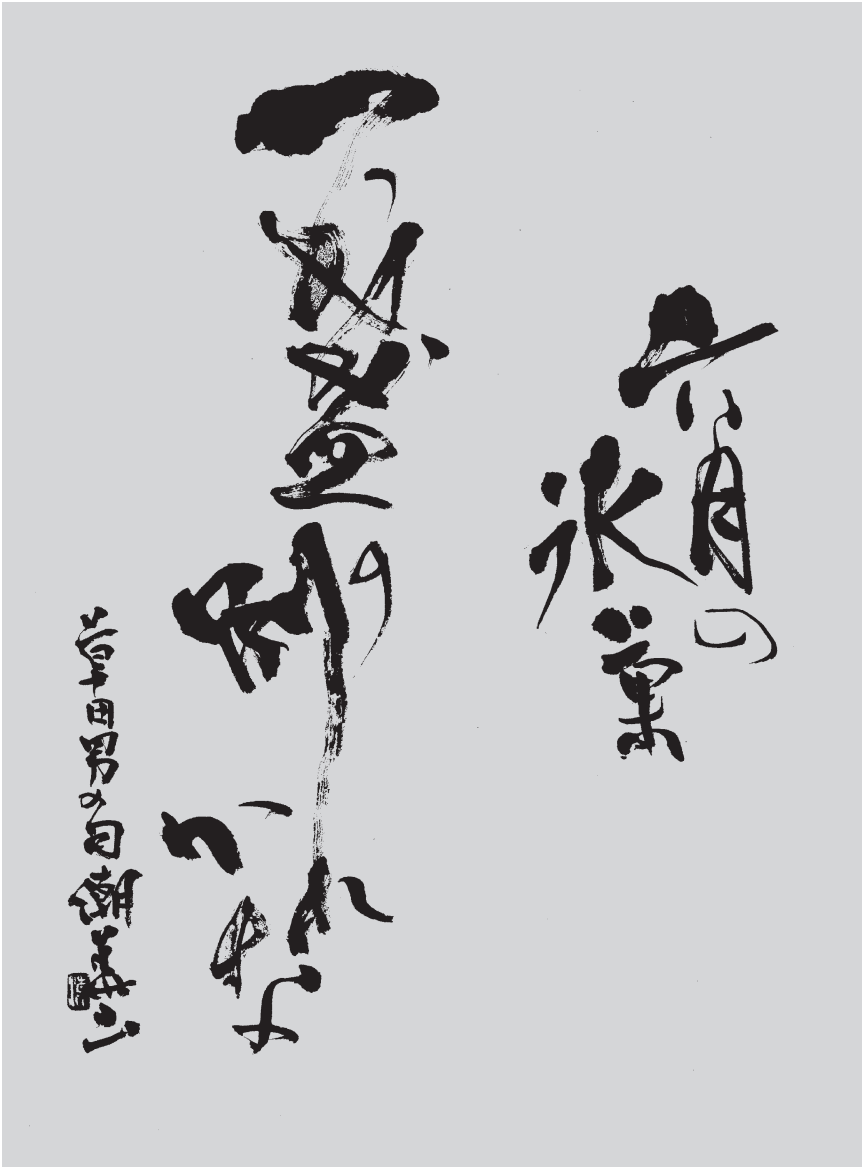 六月の
氷菓
一盞の別れ
かな
草田男の句 潮義